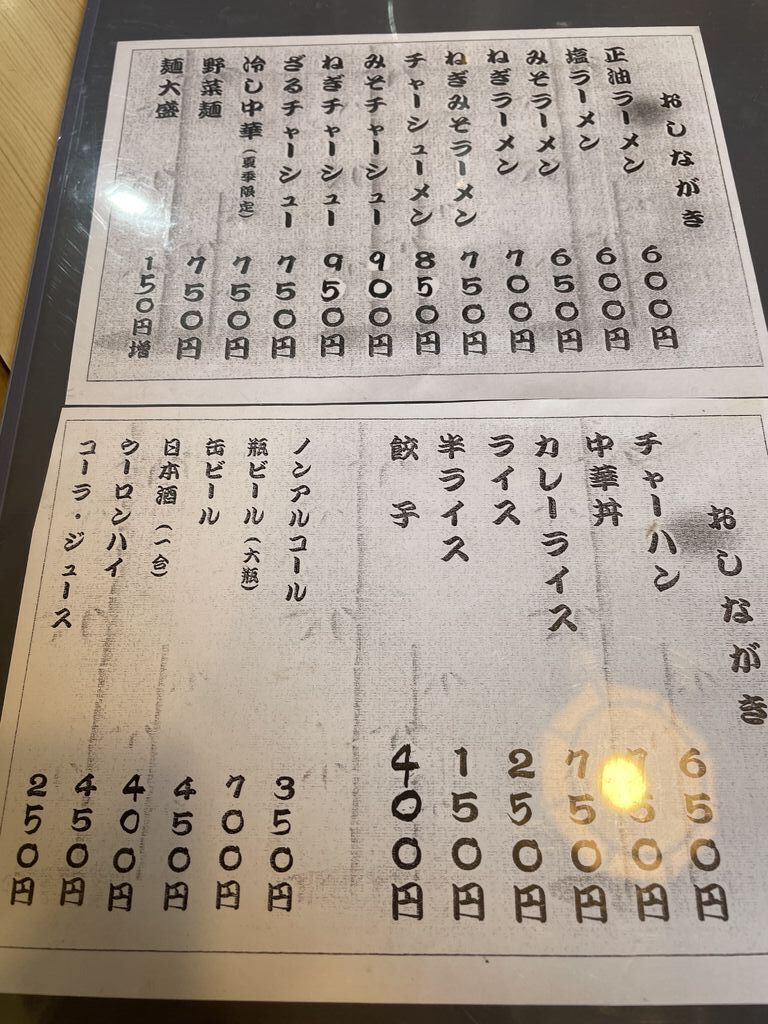 おしながき
正油ラーメン 600円
塩ラーメン 600円
みそラーメン 650円
ねぎラーメン 700円
ねぎみそラーメン 750円
チャーシューメン 850円
みそチャーシュー 900円
ねぎチャーシュー 950円
ざるチャーシュー 750円
冷し中華(夏季限定) 750円
野菜麺 750円
麺大盛 150円増
おしながき
チャーハン 650円
中華丼 750円
カレーライス 750円
ライス 250円
半ライス 150円
餃子 400円
ノンアルコール 350円
瓶ビール(大瓶) 700円
缶ビール 450円
日本酒(一合) 400円
ウーロンハイ 450円
コーラ・ジュース 250円